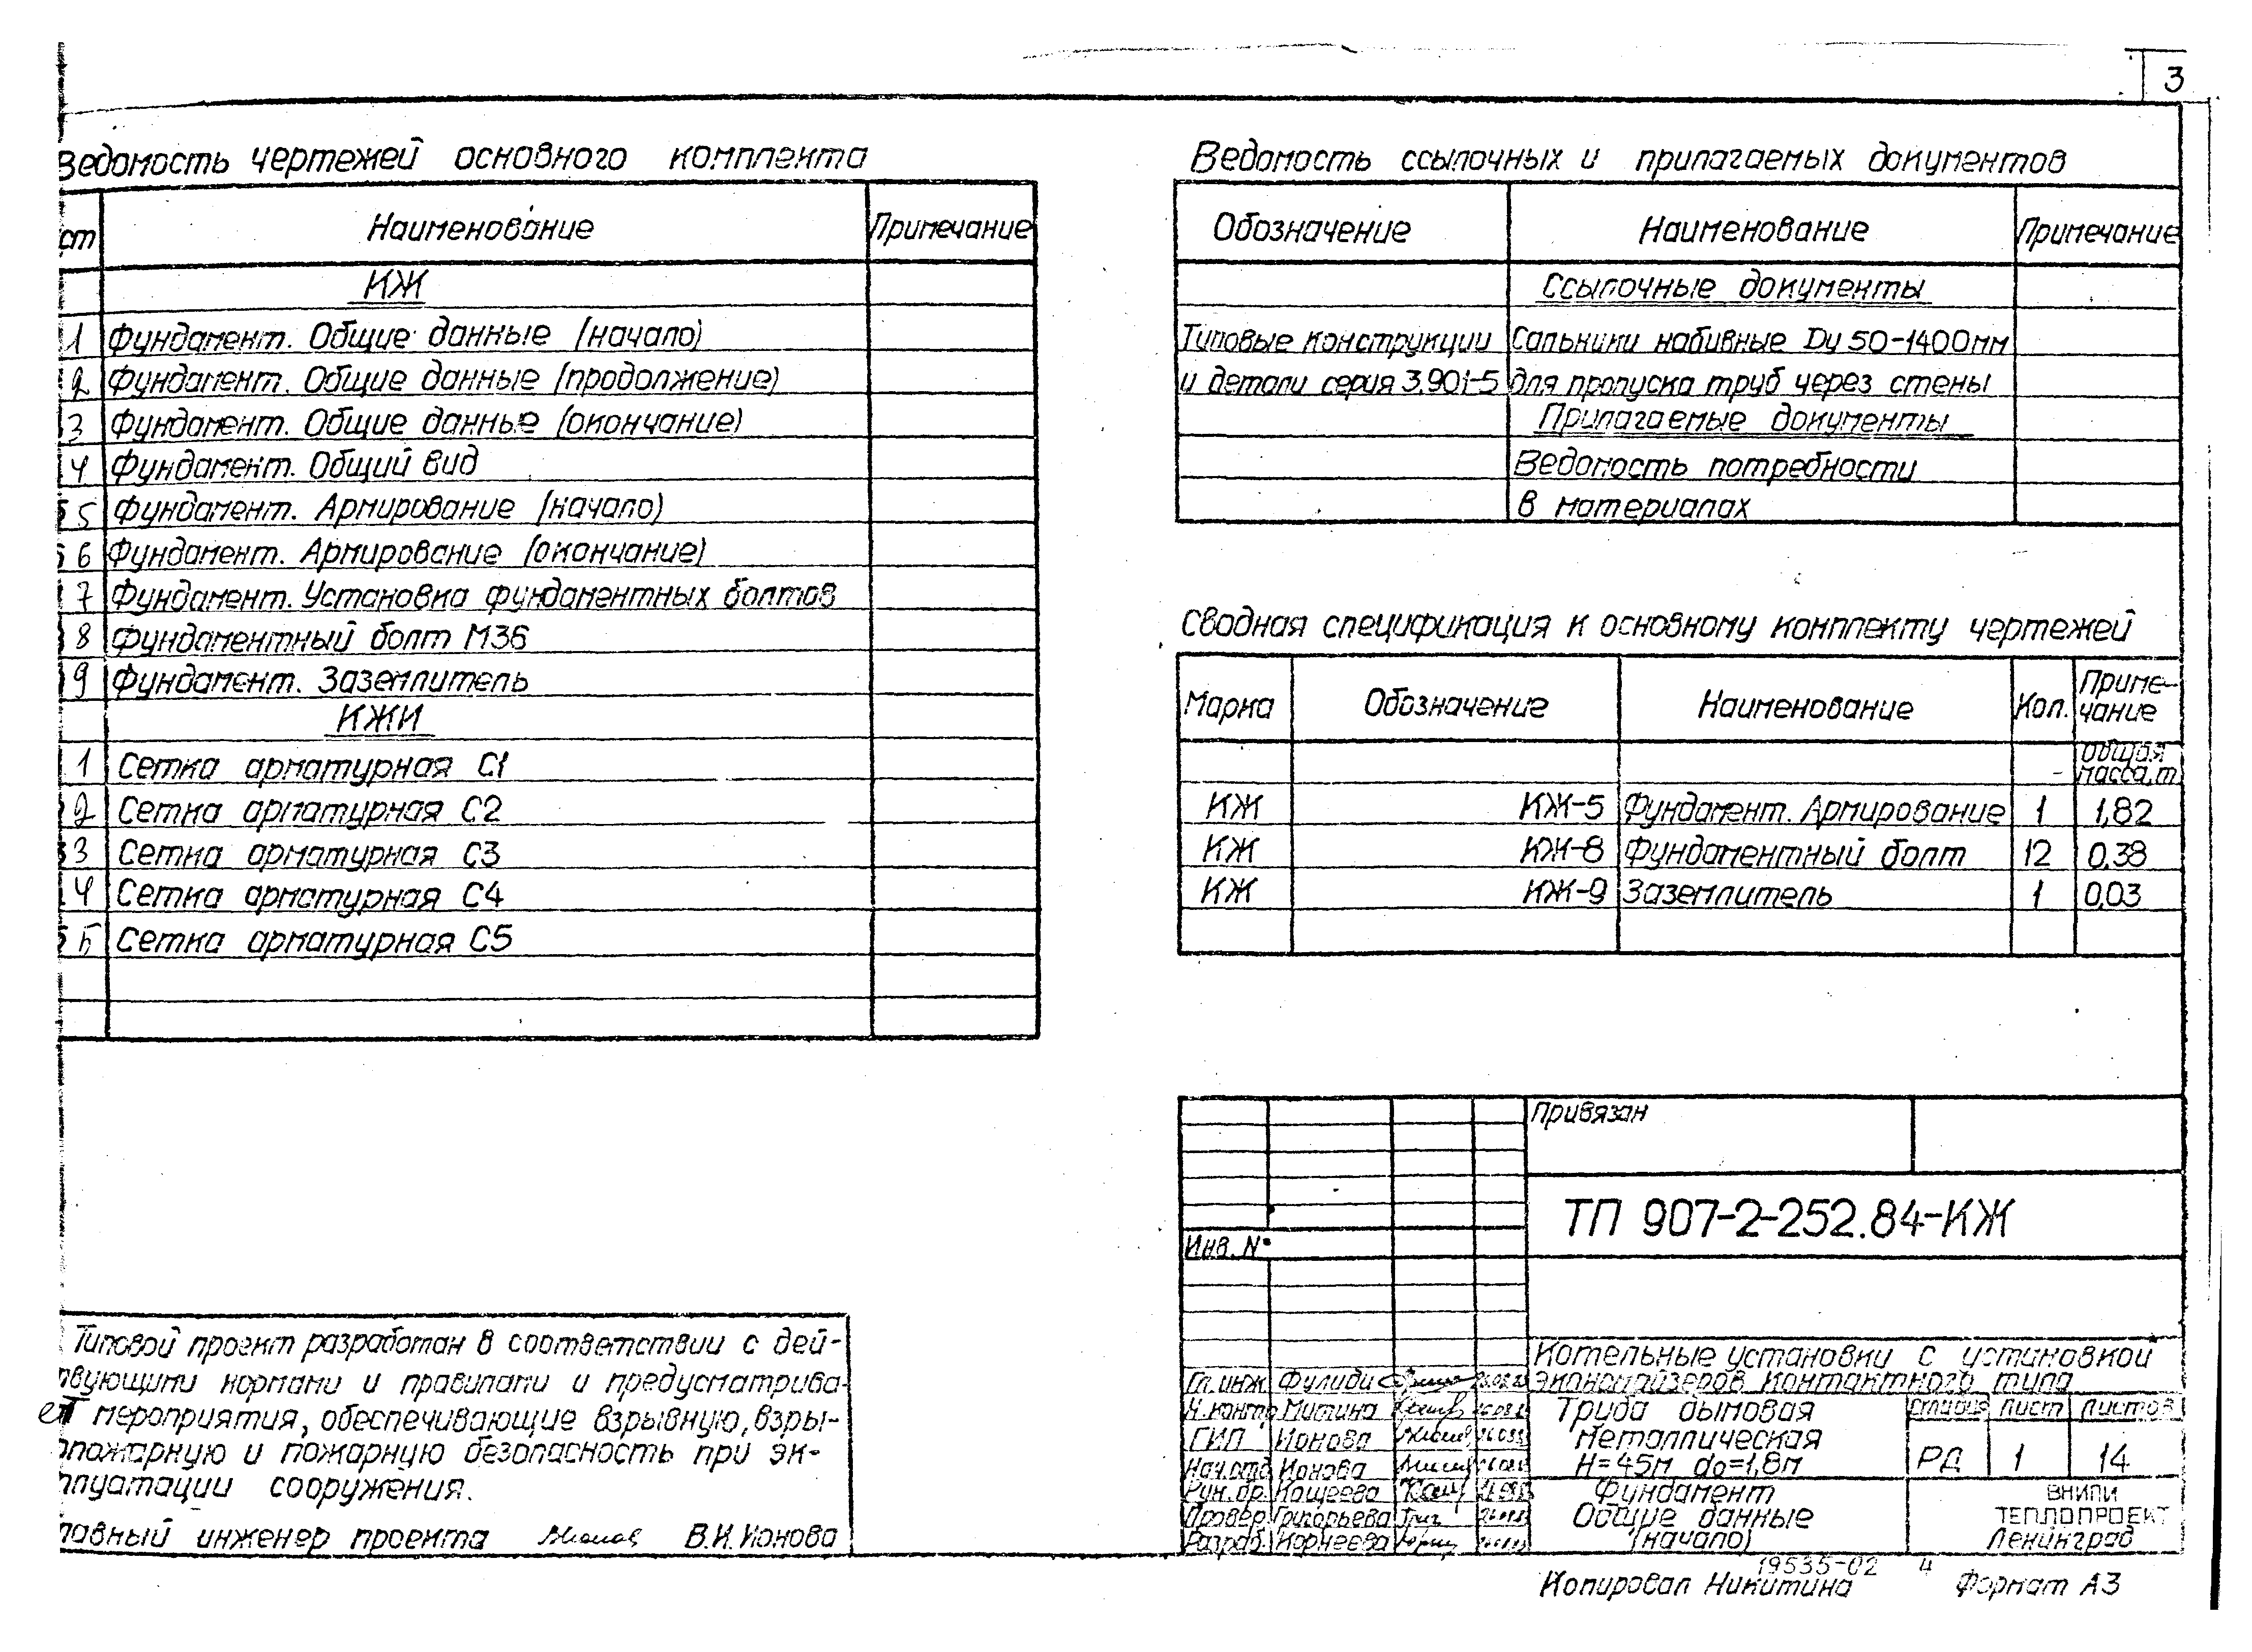 3
Ведомость чертежей основного комплекта
ст Наименование Примечание
КЖ
1 Фундамент. Общие данные (начало)
2 Фундамент. Общие данные (продолжение)
3 Фундамент. Общие данные (окончание)
4 Фундамент. Общий вид
5 Фундамент. Армирование (начало)
6 Фундамент. Армирование (окончание)
7 Фундамент. Установка фундаментных болтов
8 Фундаментный болт М36
9 Фундамент. Заземлитель
КЖИ
1 Сетка арматурная С1
2 Сетка арматурная С2
3 Сетка арматурная С3
4 Сетка арматурная С4
5 Сетка арматурная С5
Типовой проект разработан в соответствии с дей-
твующими нормами и правилами и предусматрива-
ет мероприятия, обеспечивающие взрывную, взры-
опожарную и пожарную безопасность при эк-
плуатации сооружения.
лавный инженер проекта В.И. Ионова
Ведомость ссылочных и прилагаемых документов
Обозначение Наименование Примечание
Ссылочные документы
Типовые конструкции Сальники набивные Dу 50-1400мм
и детали серия 3.901-5 для пропуска труб через стены
Прилагаемые документы
Ведомость потребности
в материалах
Сводная спецификация к основному комплекту чертежей
Марка Обозначение Наименование Кол. Приме-
чание
Общая
масса, т
КЖ КЖ-5 Фундамент. Армирование 1 1,82
КЖ КЖ-8 Фундаментный болт 12 0,38
КЖ КЖ-9 Заземлитель 1 0,03
Привязан
ТП 907-2-252.84-КЖ
Инв. №
Котельные установки с установкой
экономайзеров контактного типа
Гл. инж. Фулиди
Н. контр Митина
ГИП Ионова
Нач. отд Ионова
Рук. бр. Кощеева
Провер. Григорьева
Разраб. Корнеева
Труба дымовая
металлическая
Н=45м dо=1,8м
Стадия Лист Листов
РД 1 14
Фундамент
Общие данные
(начало)
ВНИПИ
ТЕПЛОПРОЕКТ
Ленинград
19535-02 4
Копировал Никитина Формат А3